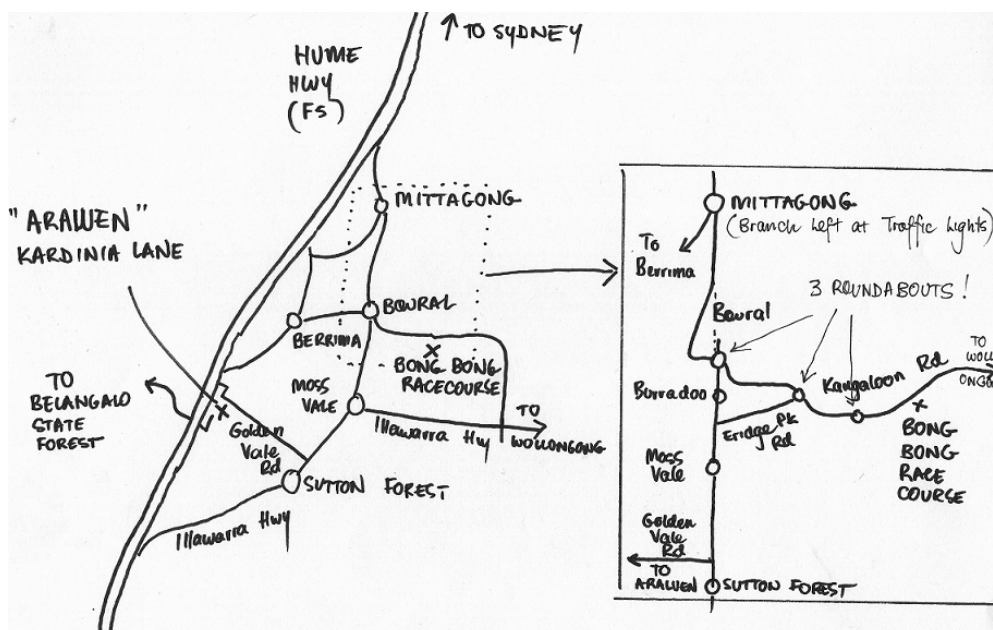 ↑ TO SYDNEY
HUME
HWY
(F5)
MITTAGONG
"ARAWEN"
KARDINIA LANE
BOWRAL
BERRIMA
BONG BONG
RACECOURSE
TO
BELANGALO
STATE
FOREST
MOSS
VALE
Golden
Vale
Rd
Illawarra Hwy
TO
WOLLONGONG
SUTTON FOREST
Illawarra Hwy
MITTAGONG
(Branch Left at Traffic Lights)
To
Berrima
3 ROUNDABOUTS!
Bowral
TO
WOLL
ONGG
Kangaloon Rd
Burradoo
Eridge Pk
Rd
BONG
BONG
RACE
COURSE
Moss
Vale
Golden
Vale
Rd
TO
ARAWEN
SUTTON FOREST